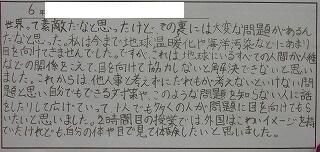 6年
世界って素敵だなと思ったけど、その裏には大変な問題があるん
だなと思った。私は今まで地球温暖化や海洋汚染などにあまり
目を向けてきませんでした。ですが、これは地球にいるすべての人間が人種
などの関係をこえて、目を向けて協力しないと解決できないと思い
ました。これからは、他人事と考えずにだれもが考えないといけない問
題と思い自分でもできるSDGs策や、このような問題を知らない人に話
をしたりして広げていって1人でも多くの人が問題に目を向けてもら
いたいと思いました。2時間目の授業では、外国はこわいイメージを持っ
ていたけれども、自分の体や目で見て体験したいと思いました。